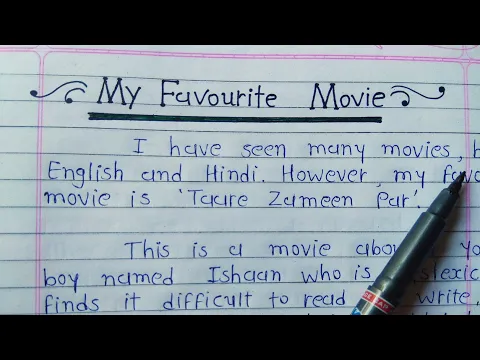 My Favourite Movie
I have seen many movies,
English and Hindi. However, my
movie is 'Taare Zameen Par'.
This is a movie
boy named Ishaan who is
finds it difficult to read write,